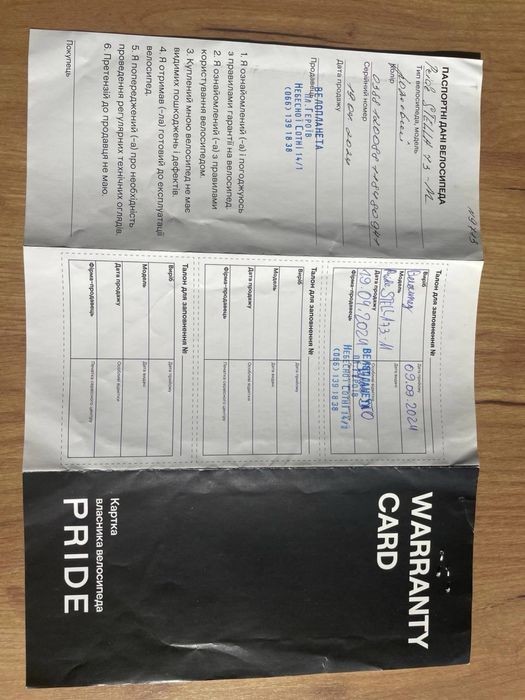 ПАСПОРТНІ ДАНІ ВЕЛОСИПЕДА
Pride STELLA 7.3 - M
Тип велосипеда, модель
Колір
Серійний номер
19.04.2024
Дата продажу
ВЕЛОПЛАНЕТА
пл. ГЕРОЇВ
НЕБЕСНОЇ СОТНІ 14/1
(066) 139 18 38
Продавець
1. Я ознайомлений (-а) і погоджуюсь
з правилами гарантії на велосипед.
2. Я ознайомлений (-а) з правилами
користування велосипедом.
3. Куплений мною велосипед не має
видимих пошкоджень і дефектів.
4. Я отримав (-ла) готовий до експлуатації
велосипед.
5. Я попереджений (-а) про необхідність
проведення регулярних технічних оглядів.
6. Претензій до продавця не маю.
Покупець
Талон для заповнення №
Виріб
Дата прийому
09.09.2024
Модель
Дата видачі
Pride STELLA 7.3 M
Дата продажу
19.04.2024
Фірма-продавець
ВЕЛОПЛАНЕТА
пл. ГЕРОЇВ
НЕБЕСНОЇ СОТНІ 14/1
(066) 139 18 38
Талон для заповнення №
Виріб
Дата прийому
Модель
Дата видачі
Дата продажу
Особливі відмітки
Фірма-продавець
Печатка сервісного центру
Талон для заповнення №
Виріб
Дата прийому
Модель
Дата видачі
Дата продажу
Особливі відмітки
Фірма-продавець
Печатка сервісного центру
WARRANTY
CARD
Картка
власника велосипеда
PRIDE